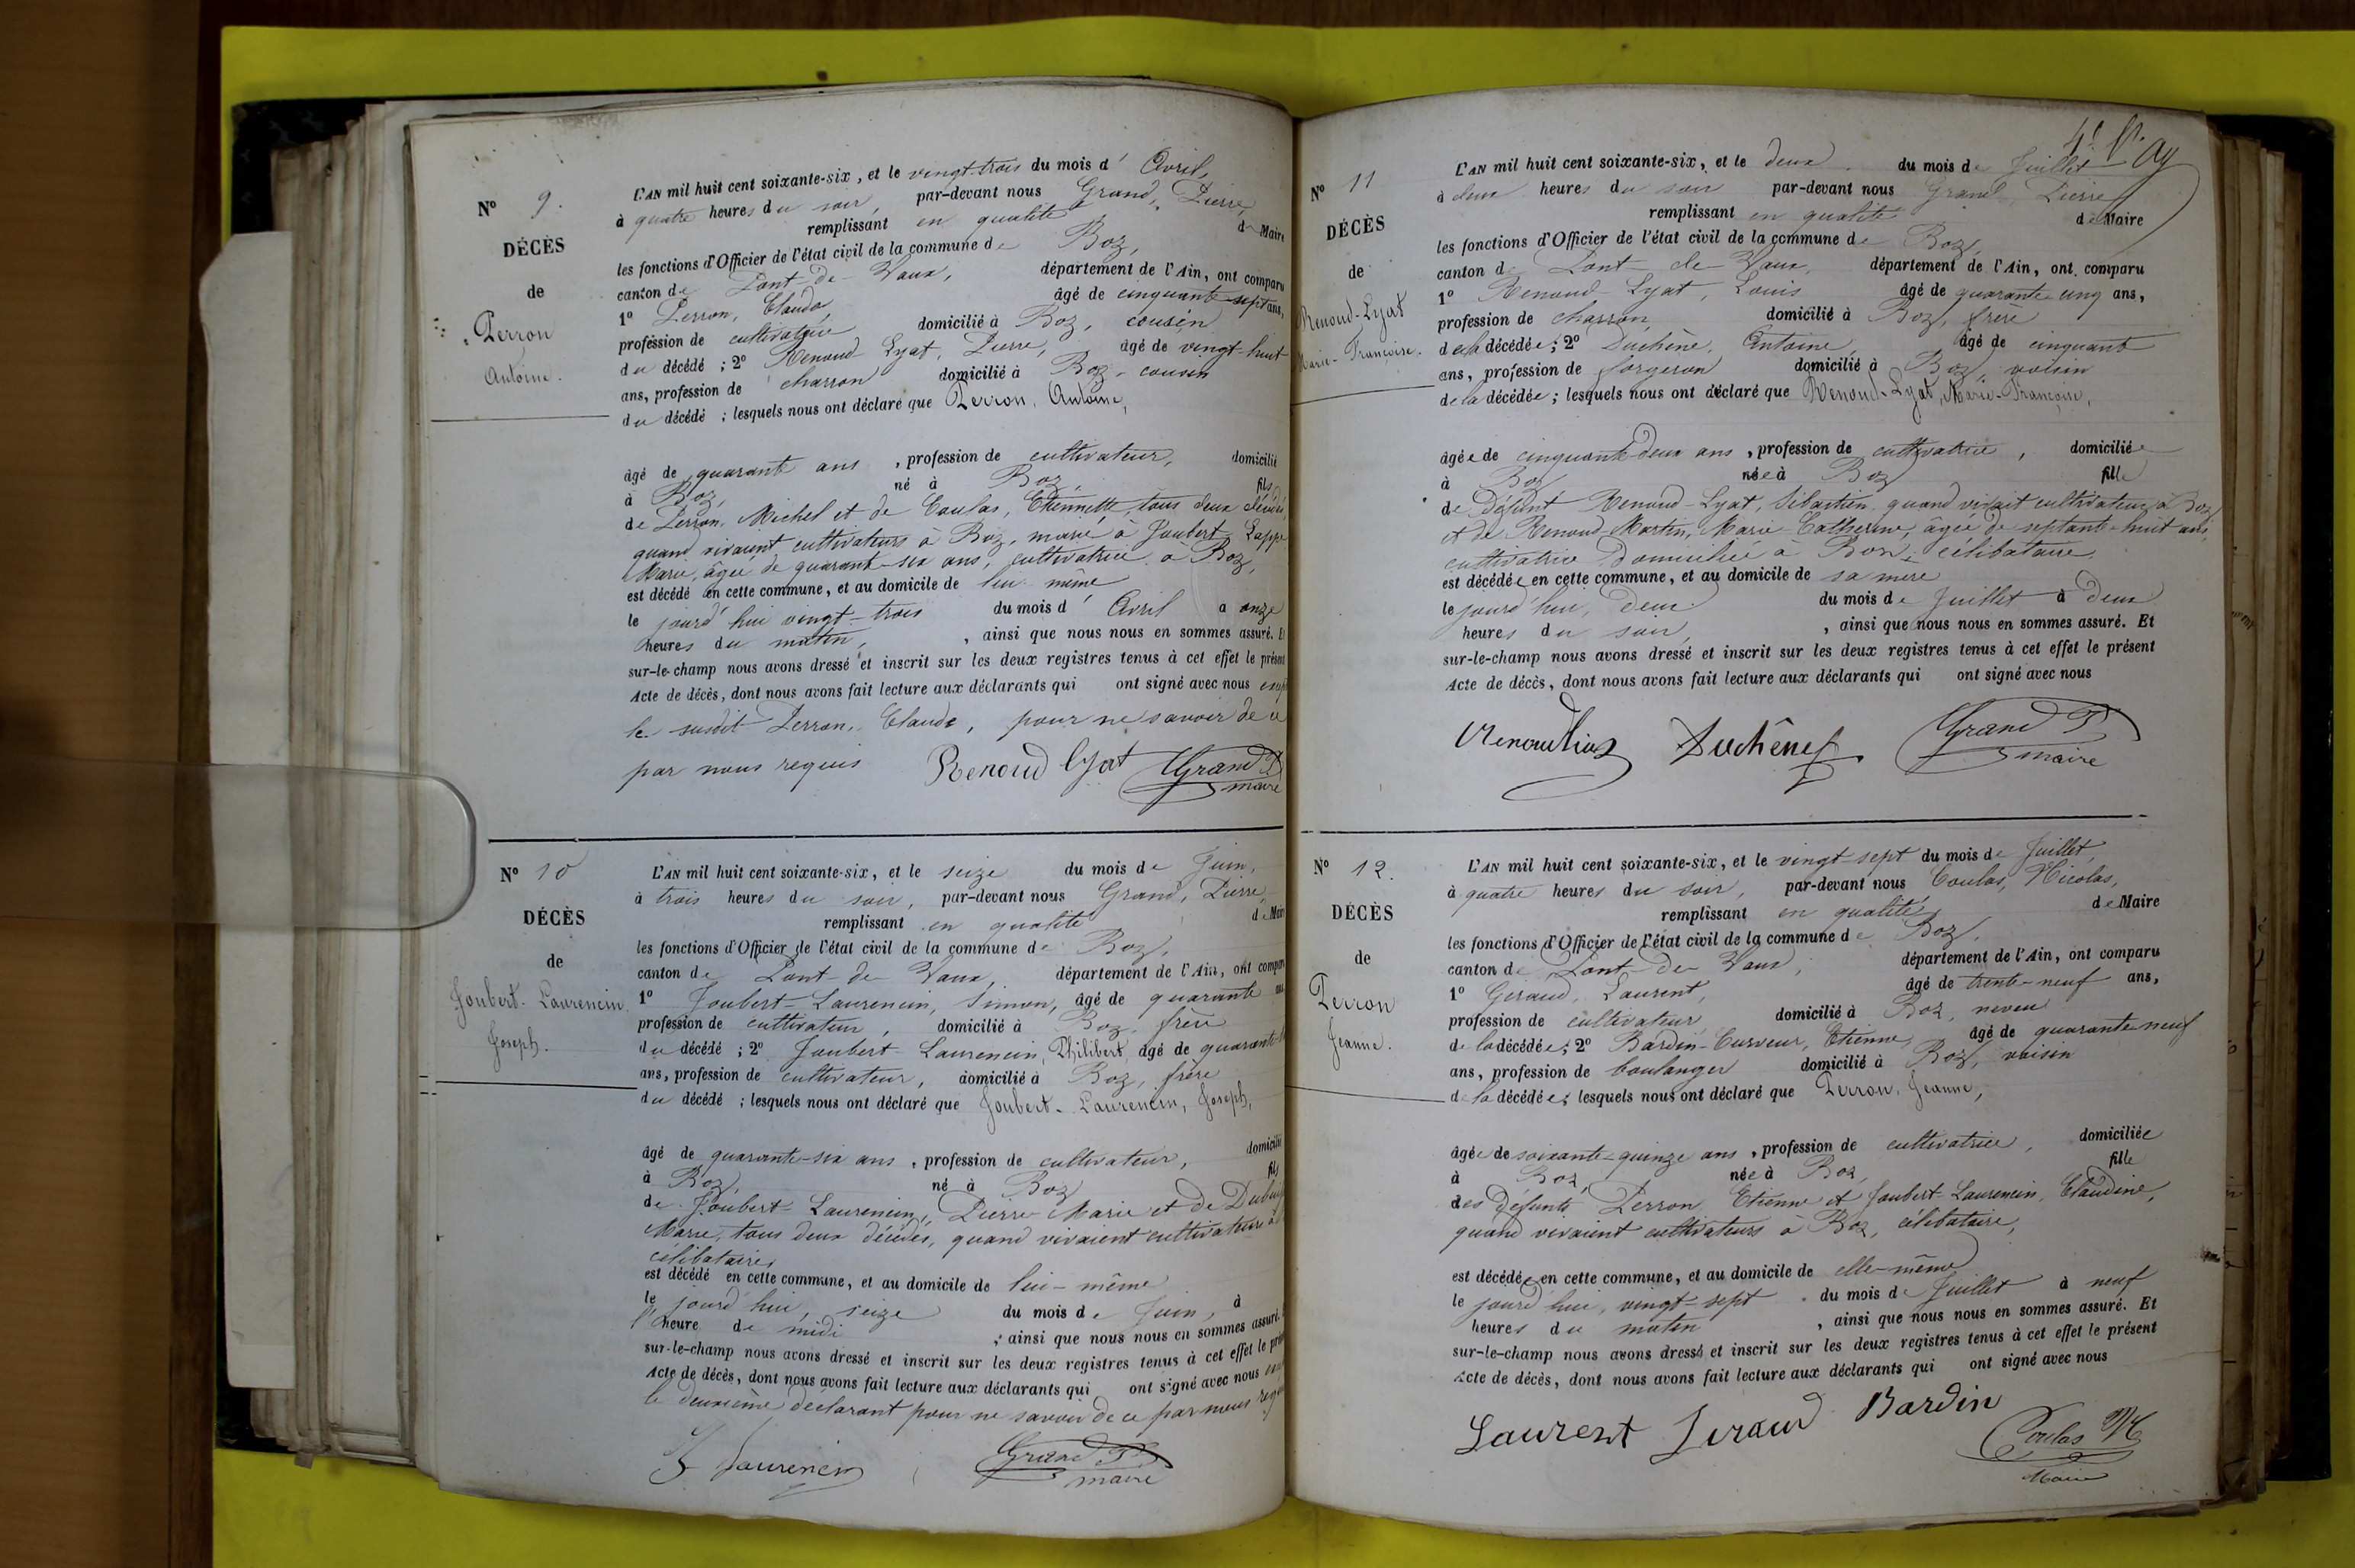 N° 9.
DÉCÈS
de
Perron
Antoine.
L'AN mil huit cent soixante-six, et le vingt-trois du mois d'Avril,
à quatre heures du soir, par-devant nous Grand, Pierre,
remplissant en qualité de Maire
les fonctions d'Officier de l'état civil de la commune de Boz,
canton de Pont-de-Vaux, département de l'Ain, ont comparu
1° Perron, Claude, âgé de cinquante-sept ans,
profession de cultivateur domicilié à Boz, cousin
du décédé ; 2° Renoud-Lyat, Pierre, âgé de vingt-huit
ans, profession de charron domicilié à Boz, cousin
du décédé ; lesquels nous ont déclaré que Perron, Antoine,
âgé de quarante ans, profession de cultivateur, domicilié
à Boz, né à Boz, fils
de Perron, Michel et de Coulas, Etiennette, tous deux décédés,
quand vivaient cultivateurs à Boz, marié à Joubert-Lappe
Marie, âgée de quarante-six ans, cultivatrice à Boz,
est décédé en cette commune, et au domicile de lui-même
le jourd'hui vingt-trois du mois d'Avril à onze
heures du matin, ainsi que nous nous en sommes assuré. Et
sur-le-champ nous avons dressé et inscrit sur les deux registres tenus à cet effet le présent
Acte de décès, dont nous avons fait lecture aux déclarants qui ont signé avec nous
le susdit Perron, Claude, pour ne savoir de ce
par nous requis Renoud Lyat Grand P.
maire
N° 10
DÉCÈS
de
Joubert-Laurencin
Joseph.
L'AN mil huit cent soixante-six, et le seize du mois de Juin,
à trois heures du soir, par-devant nous Grand, Pierre,
remplissant en qualité de Maire
les fonctions d'Officier de l'état civil de la commune de Boz,
canton de Pont-de-Vaux, département de l'Ain, ont comparu
1° Joubert-Laurencin, Simon, âgé de quarante
profession de cultivateur, domicilié à Boz, frère
du décédé ; 2° Joubert-Laurencin, Philibert, âgé de quarante
ans, profession de cultivateur, domicilié à Boz, frère
du décédé ; lesquels nous ont déclaré que Joubert-Laurencin, Joseph,
âgé de quarante-six ans, profession de cultivateur, domicilié
à Boz, né à Boz fils
de Joubert-Laurencin, Pierre-Marie et de
Marie, tous deux décédés, quand vivaient cultivateurs à
célibataire,
est décédé en cette commune, et au domicile de lui-même
le jourd'hui, seize du mois de Juin, à
l'heure de midi ; ainsi que nous nous en sommes assuré.
sur-le-champ nous avons dressé et inscrit sur les deux registres tenus à cet effet le
Acte de décès, dont nous avons fait lecture aux déclarants qui ont signé avec nous
le deuxième déclarant pour ne savoir de ce par nous
Laurencin Grand P.
maire
N° 11
DÉCÈS
de
Renoud-Lyat
Marie-Françoise.
L'AN mil huit cent soixante-six, et le deux du mois de Juillet
à deux heures du soir par-devant nous Grand, Pierre
remplissant en qualité de Maire
les fonctions d'Officier de l'état civil de la commune de Boz,
canton de Pont-de-Vaux, département de l'Ain, ont comparu
1° Renoud-Lyat, Louis âgé de quarante-cinq ans,
profession de charron, domicilié à Boz, frère
de la décédée ; 2° Duchêne, Antoine, âgé de cinquante
ans, profession de forgeron domicilié à Boz, voisin
de la décédée ; lesquels nous ont déclaré que Renoud-Lyat, Marie-Françoise,
âgée de cinquante-deux ans, profession de cultivatrice, domiciliée
à Boz née à Boz fille
de Défunt Renoud-Lyat, Sébastien quand vivait cultivateur à Boz,
et de Renoud-Martin, Marie-Catherine, âgée de septante-huit ans,
cultivatrice domiciliée à Boz, célibataire,
est décédée en cette commune, et au domicile de sa mère
le jourd'hui, deux du mois de Juillet à deux
heures du soir, ainsi que nous nous en sommes assuré. Et
sur-le-champ nous avons dressé et inscrit sur les deux registres tenus à cet effet le présent
Acte de décès, dont nous avons fait lecture aux déclarants qui ont signé avec nous
Duchêne Grand P.
maire
N° 12.
DÉCÈS
de
Perron
Jeanne.
L'AN mil huit cent soixante-six, et le vingt-sept du mois de Juillet,
à quatre heures du soir, par-devant nous Coulas, Nicolas,
remplissant en qualité de Maire
les fonctions d'Officier de l'état civil de la commune de Boz,
canton de Pont-de-Vaux, département de l'Ain, ont comparu
1° Geraud, Laurent, âgé de trente-neuf ans,
profession de cultivateur domicilié à Boz, neveu
de la décédée ; 2° Bardin-Curveur, Etienne, âgé de quarante-neuf
ans, profession de boulanger domicilié à Boz, voisin
de la décédée ; lesquels nous ont déclaré que Perron, Jeanne,
âgée de soixante-quinze ans, profession de cultivatrice, domiciliée
à Boz, née à Boz, fille
des défunts Perron Etienne et Joubert-Laurencin, Claudine,
quand vivaient cultivateurs à Boz, célibataire,
est décédée en cette commune, et au domicile de elle-même
le jourd'hui, vingt-sept du mois de Juillet à neuf
heures du matin, ainsi que nous nous en sommes assuré. Et
sur-le-champ nous avons dressé et inscrit sur les deux registres tenus à cet effet le présent
Acte de décès, dont nous avons fait lecture aux déclarants qui ont signé avec nous
Laurent Geraud Bardin
Coulas N
Maire